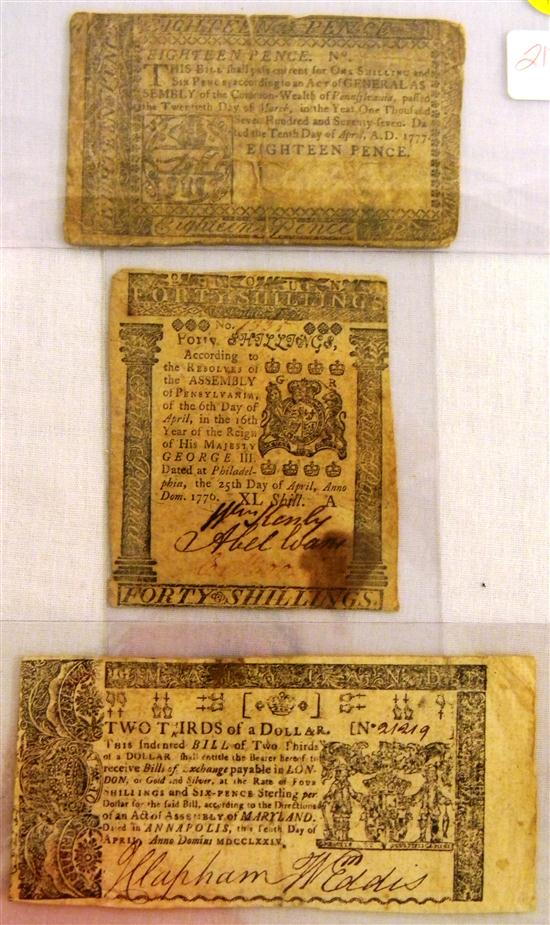 21
EIGHTEEN PENCE
EIGHTEEN PENCE. No.
THIS BILL shall pass current for ONE SHILLING and
SIX PENCE, according to an Act of GENERAL AS
SEMBLY of the Common-Wealth of Pennsylvania, passed
the Twentieth Day of March, in the Year One Thousand
Seven Hundred and Seventy-seven. Da
ted the Tenth Day of April, A.D. 1777.
EIGHTEEN PENCE.
Eighteen Pence
FORTY SHILLINGS
No.
Forty SHILLINGS,
According to
the RESOLVES of
the ASSEMBLY
of PENSYLVANIA,
of the 6th Day of
April, in the 16th
Year of the Reign
of His MAJESTY
GEORGE III.
Dated at Philadel-
phia, the 25th Day of April, Anno
Dom. 1776. XL Shill. A
G R
Abel Evans
FORTY SHILLINGS.
MARYLAND
TWO THIRDS of a DOLLAR. [No 21219
THIS Indented BILL of Two Thirds
of a DOLLAR shall entitle the Bearer hereof to
receive Bills of Exchange payable in LON-
DON, or Gold and Silver, at the Rate of FOUR
SHILLINGS and SIX-PENCE Sterling per
Dollar for the said Bill, according to the Directions
of an Act of ASSEMBLY of MARYLAND.
Dated in ANNAPOLIS, this Tenth Day of
APRIL, Anno Domini MDCCLXXIV.
J Clapham Wm Eddis